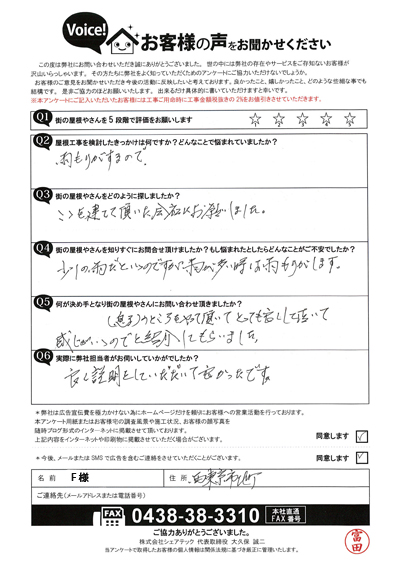 Voice!
お客様の声をお聞かせください
この度は弊社にお問い合わせいただき誠にありがとうございました。世の中には弊社の存在やサービスをご存知ないお客様が
沢山いらっしゃいます。その方たちに弊社をよく知っていただくためのアンケートにご協力いただけないでしょうか。
お客様のご意見をお聞かせいただき今後の活動に反映したいと考えております。良かったこと、嬉しかったこと、どのような些細な事でも
結構です。是非ご協力のほどお願いいたします。出来るだけ具体的に書いていただけますと幸いです。
※本アンケートにご記入いただいたお客様には工事ご用命時に工事金額税抜きの2%をお値引きさせていただきます。
Q1 街の屋根やさんを5段階で評価をお願いします ☆ ☆ ☆ ☆ ☆
Q2 屋根工事を検討したきっかけは何ですか?どんなことで悩まれていましたか?
雨もりがするので、
Q3 街の屋根やさんをどのように探しましたか?
ここを建てて頂いた会社にお願いしました。
Q4 街の屋根やさんを知りすぐにお問合せ頂けましたか?もし悩まれたとしたらどんなことがご不安でしたか?
少しの雨だといいのですが雨が多い時は雨もりがします。
Q5 何が決め手となり街の屋根やさんにお問い合わせ頂きましたか?
感じがいいのでと紹介してもらいました。
Q6 実際に弊社担当者がお伺いしていかがでしたか?
良く説明をしていただいて良かったです。
*弊社は広告宣伝費を極力かけない為にホームページだけを頼りにお客様への営業活動を行っております。
本アンケート用紙またはお客様宅の調査風景や施工状況、お客様の顔写真を
随時ブログ形式のインターネットに掲載させて頂いております。
上記内容をインターネットや印刷物に掲載させていただく場合がございます。 同意します ✓
*今後、メールまたはSMSで広告を含むご連絡をさせていただくことがございます。 同意します ✓
名前 F様 住所 西東京市
ご連絡先(メールアドレスまたは電話番号)
FAX 0438-38-3310 本社直通 FAX番号
ご協力ありがとうございました。
株式会社シェアテック 代表取締役 大久保 誠二
当アンケートで取得したお客様の個人情報は関係法規に基づき厳正に管理いたします。
富田